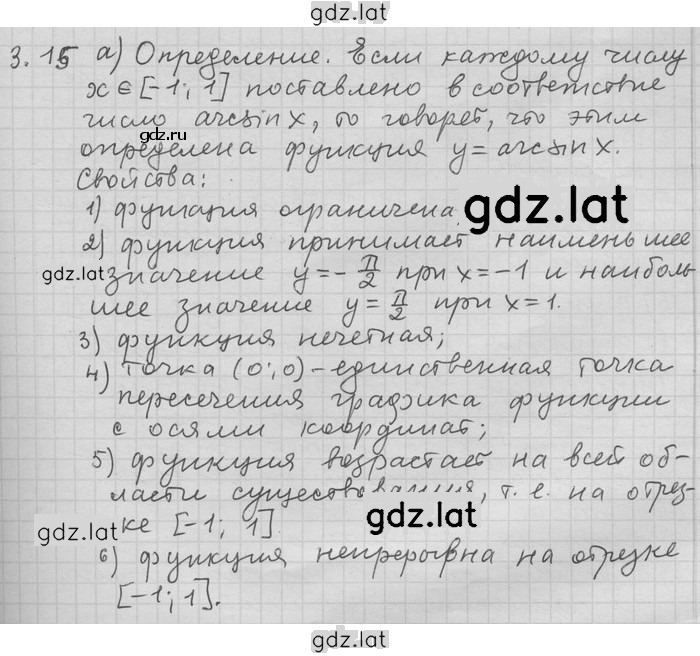 gdz.lat
3.15 а) Определение. Если каждому числу
x ∈ [-1; 1] поставлено в соответствие
число arcsin x, то говорят, что этим
gdz.ru
определена функция y = arcsin x.
Свойства:
1) функция ограничена
gdz.lat
2) функция принимает наименьшее
gdz.lat
значение y = -π/2 при x = -1 и наиболь
шее значение y = π/2 при x = 1.
3) функция нечетная;
4) точка (0; 0) - единственная точка
пересечения графика функции
с осями координат;
5) функция возрастает на всей об-
ласти существования, т. е. на отрез-
ке [-1; 1]
gdz.lat
gdz.lat
6) функция непрерывна на отрезке
[-1; 1].
gdz.lat